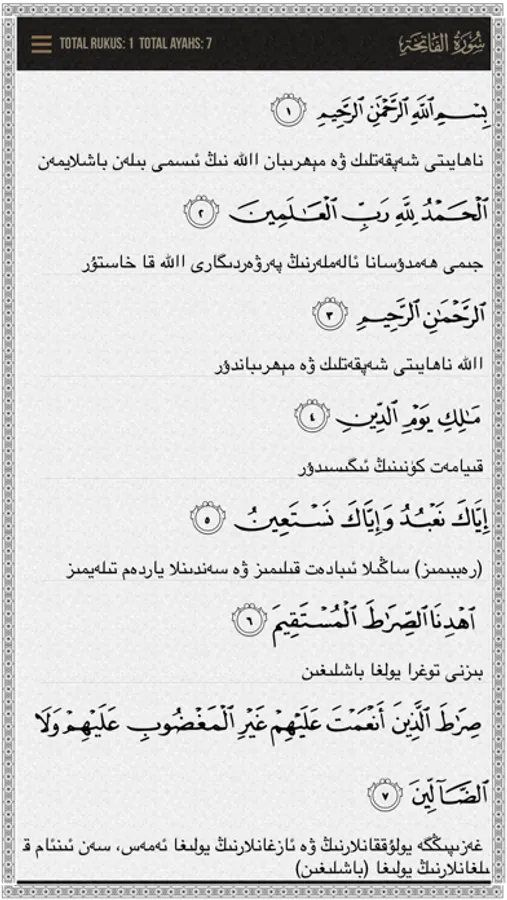 TOTAL RUKUS: 1 TOTAL AYAHS: 7 سُوْرَةُ الفَاتِحَةِ
بِسْمِ ٱللَّهِ ٱلرَّحْمَٰنِ ٱلرَّحِيمِ ١
ناھايىتى شەپقەتلىك ۋە مېھرىبان االله نىڭ ئىسمى بىلەن باشلايمەن
ٱلْحَمْدُ لِلَّهِ رَبِّ ٱلْعَـٰلَمِينَ ٢
جىمى ھەمدۇسانا ئالەملەرنىڭ پەرۋەردىگارى االله قا خاستۇر
ٱلرَّحْمَٰنِ ٱلرَّحِيمِ ٣
االله ناھايىتى شەپقەتلىك ۋە مېھرىباندۇر
مَـٰلِكِ يَوْمِ ٱلدِّينِ ٤
قىيامەت كۈنىنىڭ ئىگىسىدۇر
إِيَّاكَ نَعْبُدُ وَإِيَّاكَ نَسْتَعِينُ ٥
(رەببىمىز) ساڭىلا ئىبادەت قىلىمىز ۋە سەندىنلا ياردەم تىلەيمىز
ٱهْدِنَا ٱلصِّرَٰطَ ٱلْمُسْتَقِيمَ ٦
بىزنى توغرا يولغا باشلىغىن
صِرَٰطَ ٱلَّذِينَ أَنْعَمْتَ عَلَيْهِمْ غَيْرِ ٱلْمَغْضُوبِ عَلَيْهِمْ وَلَا
ٱلضَّآلِّينَ ٧
غەزىپىڭگە يولۇققانلارنىڭ ۋە ئازغانلارنىڭ يولىغا ئەمەس، سەن ئىنئام ق
ىلغانلارنىڭ يولىغا (باشلىغىن)